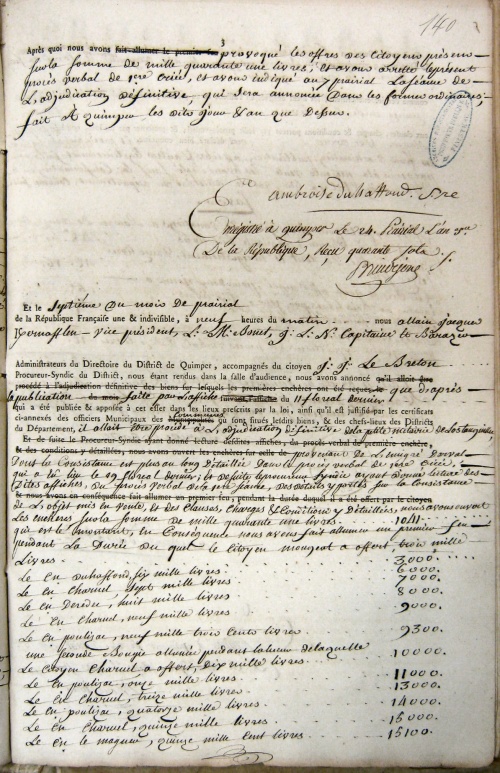 140
3
Après quoi nous avons fait allumer le premier feu provoqué les offres des citoyens présens
sur la somme de mille quarante une livres, et avons arrêté le présent
procès verbal de 1ere criée, et avons indiqué au 7 prairial la séance de
L'adjudication définitive, qui sera annoncée dans les formes ordinaires,
fait à quimper les dits jour & an que Dessus.
ambroise du haffond. Sre
Enregistré à quimper Le 24. Prairial L'an
De la République, Reçu quarante sols
Et le Septième du mois De prairial
de la République Française une & indivisible, à neuf heures du matin nous allain jacque
vice président, L. M. Bonet, J. L. N. Capitaine &
Administrateurs du Directoire du District de Quimper, accompagnés du citoyen J. J. Le Breton
Procureur-Syndic du District, nous étant rendus dans la salle d'audience, nous avons annoncé qu'il alloit être
procédé à l'adjudication définitive des biens sur lesquels les premières enchères ont été reçues le que d'après
la publication du mois faite par L'affiche suivant l'affiche du 11 floréal dernier
qui a été publiée & apposée à cet effet dans les lieux prescrits par la loi, ainsi qu'il est justifié par les certificats
ci-annexés des officiers Municipaux des Communes où sont situés lesdits biens, & des chefs-lieux des Districts
du Département, il alloit être procédé à L'adjudication définitive de la petite métairie de
Et de suite le Procureur-Syndic ayant donné lecture desdites affiches, du procès-verbal de première enchère,
& des conditions y détaillées, nous avons ouvert les enchères sur celle de provenant de L'émigré
Dont la Consistance est plus au long Détaillée Dans le procès verbal de 1ere Criée,
qui a eu lieu le 29 floréal dernier; et de suite le procureur Syndic ayant Donné lecture des
Dites affiches, du procès verbal de la 1ere criée, des détails y portés sur la Consistance
& nous avons en conséquence fait allumer un premier feu, pendant la durée duquel il a été offert par le citoyen
de L'objet mis en vente, et des Clauses, Charges & Conditions y Détaillées, nous avons ouvert
Les enchères sur la somme de mille quarante une livres 1041.
qui est le montant, en Conséquence nous avons fait allumer un premier feu
pendant La Durée Du quel le Citoyen mougeat a offert, trois mille
Livres 3000.
Le Cn Duhaffond, six mille livres 6000.
Le Cn Charuel, Sept mille livres 7000
Le Cn Deredec, huit mille livres 8000
Le Cn Charuel, neuf mille livres 9000.
Le Cn poulizac, neuf mille trois Cents livres 9300.
une seconde Bougie allumée pendant la lueur de laquelle
Le Citoyen Charuel a offert, Dix mille livres 10000.
Le Cn poulizac, onze mille livres 11000.
Le Cn Charuel, treize mille livres 13000.
Le Cn poulizac, quatorze mille livres 14000.
Le Cn Charuel, quinze mille livres 15000.
Le Cn le magueur, quinze mille Cent livres 15100.